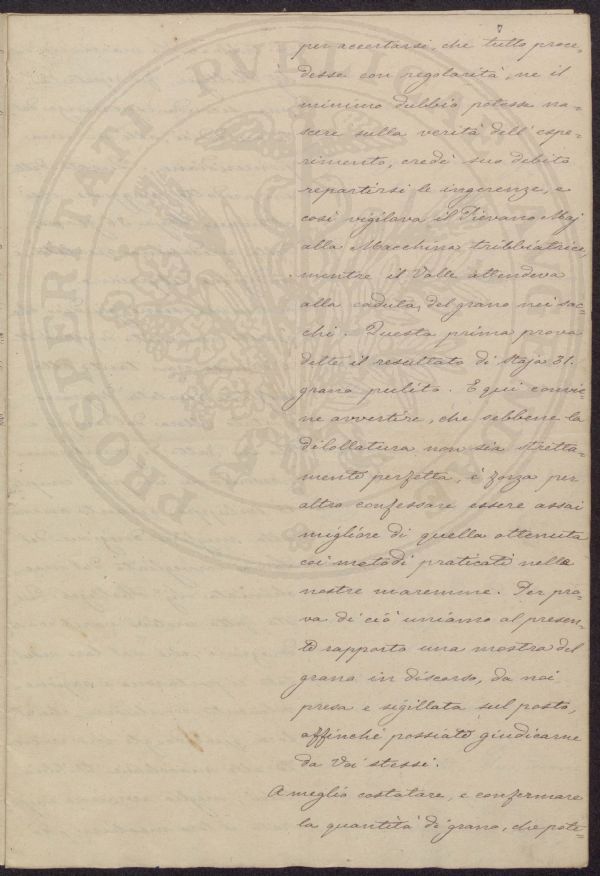 per accertarsi, che tutto proce-
desse con regolarità, ne il
minimo dubbio potesse na-
scere sulla verità dell'espe-
rimento, credè suo debito
repartirsi le ingerenze, e
così vigilava il Pievano Maj
alla Macchina tribbiatrice,
mentre il Valle attendeva
alla caduta, del grano nei sac-
chi. Questa prima prova
dette il resultato di Staja 31.
grano pulito. E qui convie-
ne avvertire, che sebbene la
dilollatura non sia stretta-
mente perfetta, è forza per
altro confessare essere assai
migliore di quella ottenuta
coi metodi praticati nelle
nostre maremme. Per pro-
va di ciò uniamo al presen-
te rapporto una mostra del
grano in discorso, da noi
presa e sigillata sul posto,
affinchè possiate giudicarne
da Voi stessi.
A meglio costatare, e confermare
la quantità di grano, che pote-
PROSPERITATI PVBLICAE